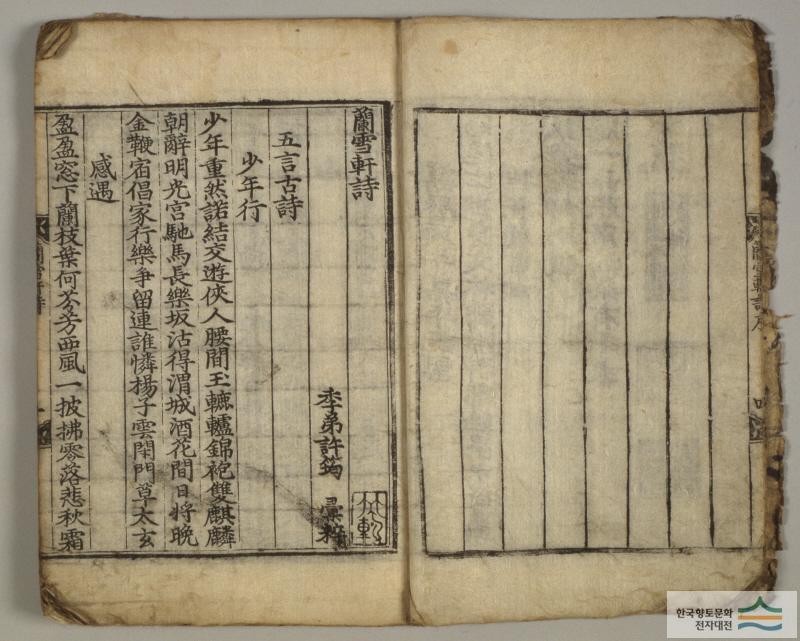 蘭雪軒詩
季弟許筠 彙粹
五言古詩
少年行
少年重然諾結交遊俠人腰間玉轆轤錦袍雙麒麟
朝辭明光宮馳馬長樂坂沽得渭城酒花間日將晩
金鞭宿倡家行樂爭留連誰憐揚子雲閑門草太玄
感遇
盈盈窓下蘭枝葉何芬芳西風一披拂零落悲秋霜
蘭雪軒詩
蘭雪軒詩序
한국향토문화
전자대전